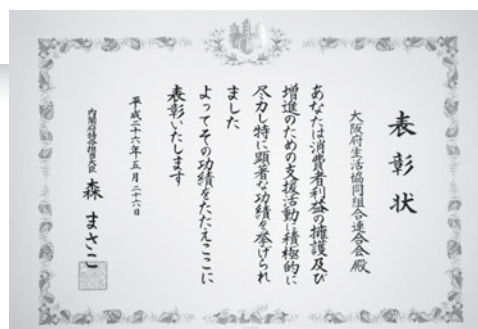 表彰状
大阪府生活協同組合連合会殿
あなたは消費者利益の擁護及び
増進のための支援活動に積極的に
尽力し特に顕著な功績を挙げられ
ました
よってその功績をたたえここに
表彰いたします
平成二十六年五月二十六日
内閣府特命担当大臣 森 まさこ